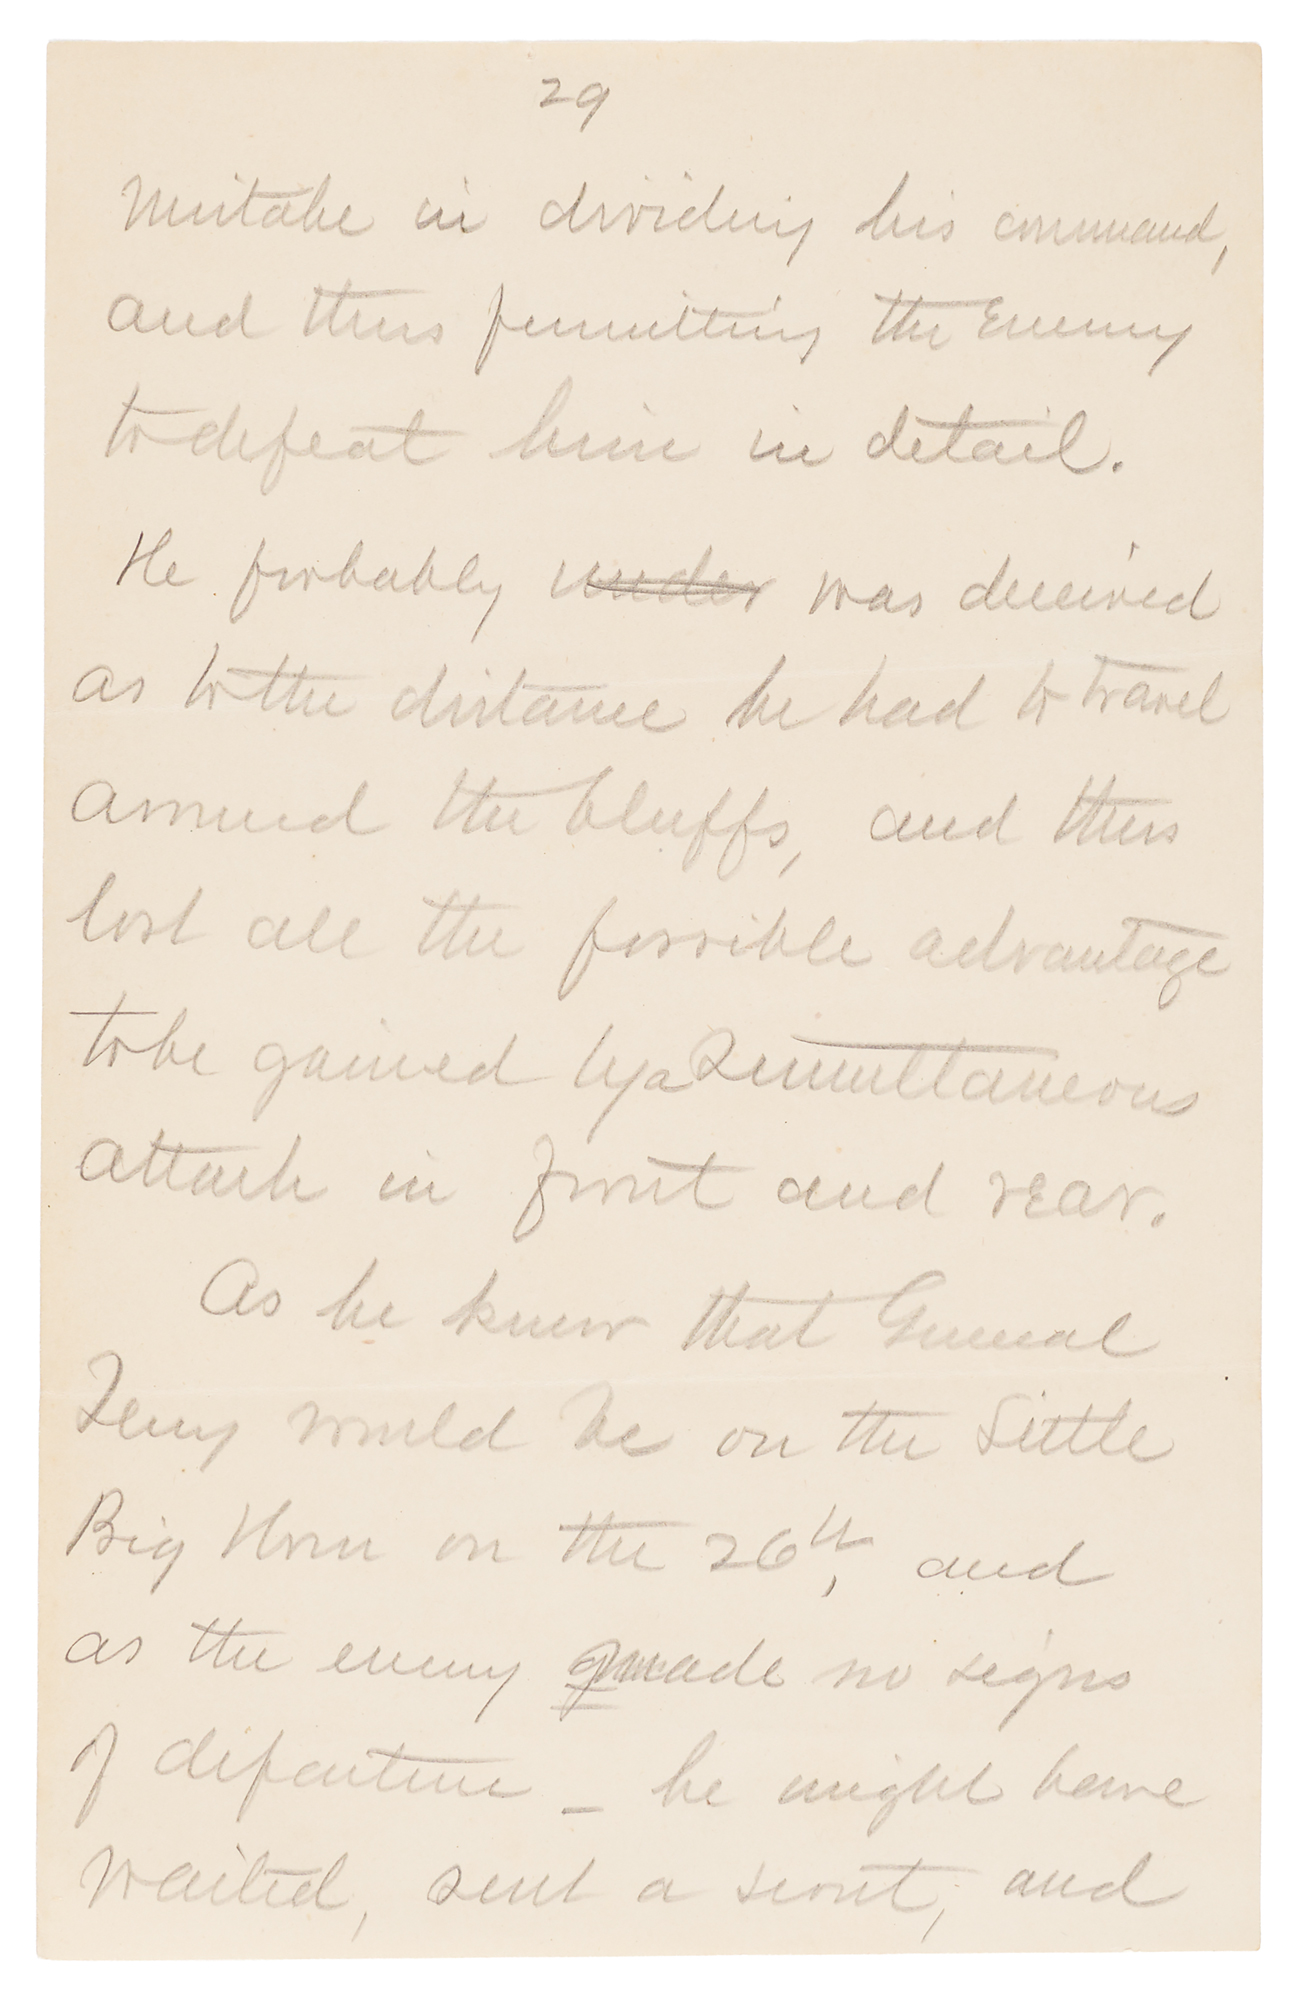 29
Mistake in dividing his command,
and thus permitting the Enemy
to defeat him in detail.
He probably under was deceived
as to the distance he had to travel
around the bluffs, and thus
lost all the possible advantage
to be gained by a Simultaneous
attack in front and rear.
As he knew that General
Terry would be on the Little
Big Horn on the 26th, and
as the enemy made no signs
of departure _ he might have
waited, sent a scout, and